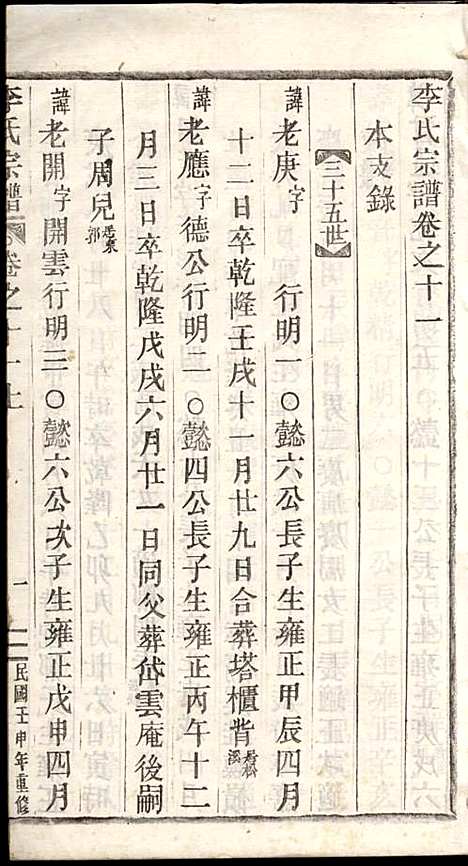 李氏宗譜卷之十一
本支錄
三十五世
諱老庚字 行明一〇懿六公長子生雍正甲辰四月
十二日卒乾隆壬戌十一月廿九日合葬塔櫃背
諱老應字德公行明二〇懿四公長子生雍正丙午十二
月三日卒乾隆戊戌六月廿一日同父葬岱雲庵後嗣
子周兒居東郭
諱老開字開雲行明三〇懿六公次子生雍正戊申四月
李氏宗譜 卷之十一上 一 民國壬申年重修